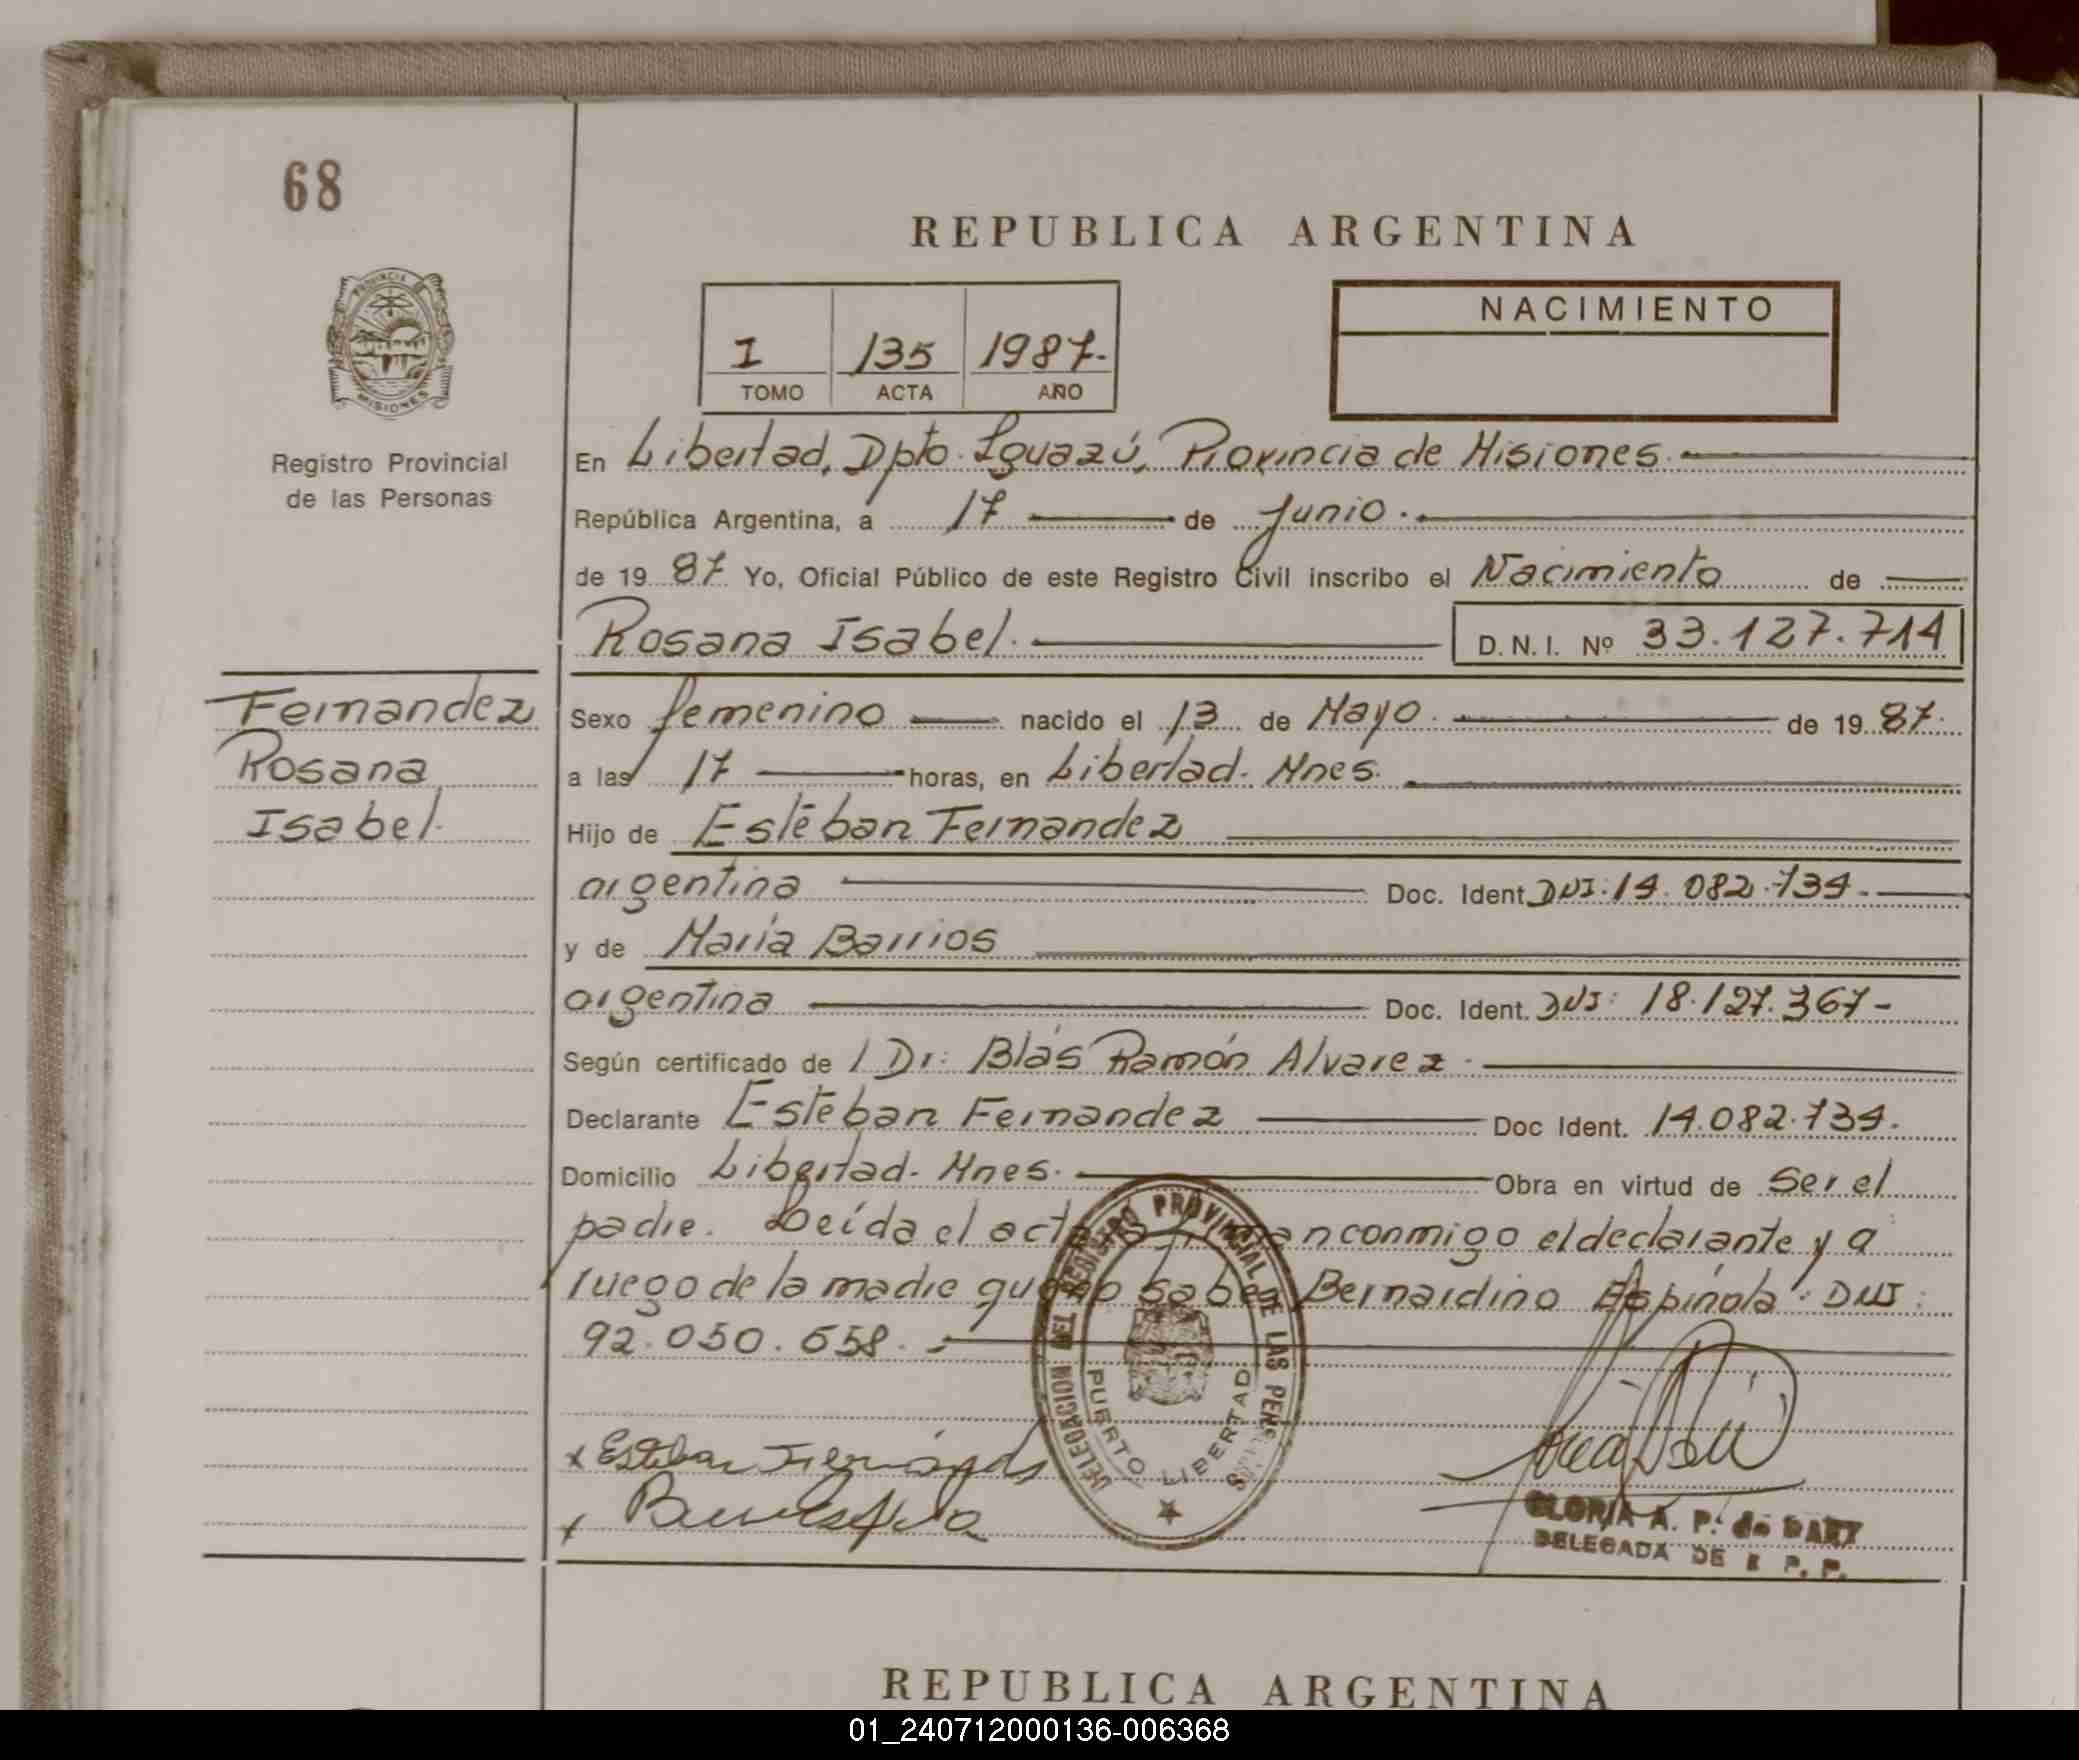 68
REPUBLICA ARGENTINA
NACIMIENTO
I 135 1987.-
TOMO ACTA AÑO
PROVINCIA
MISIONES
Registro Provincial
de las Personas
En Libertad, Dpto. Iguazú, Provincia de Misiones.
República Argentina, a 17 de Junio.
de 19 87 Yo, Oficial Público de este Registro Civil inscribo el Nacimiento de
Rosana Isabel. D.N.I. Nº 33.127.714
Fernandez
Rosana
Isabel.
Sexo femenino nacido el 13 de Mayo. de 19 87.
a las 17 horas, en Libertad. Mnes.
Hijo de Esteban Fernandez
argentina Doc. Ident. DNI: 14.082.734.-
y de María Barrios
argentina Doc. Ident. DNI: 18.127.367-
Según certificado de / Dr: Blás Ramón Alvarez.
Declarante Esteban Fernandez Doc Ident. 14.082.734.
Domicilio Libertad. Mnes. Obra en virtud de Ser el
padre. Leída el acta firman conmigo el declarante y a
ruego de la madre que no sabe Bernardino Espínola. DNI:
92.050.658.-
DELEGACION DEL REGISTRO PROVINCIAL DE LAS PERSONAS
PUERTO LIBERTAD
x Esteban Fernández
x
GLORIA A. P. de DARY
DELEGADA DE R. P. P.
REPUBLICA ARGENTINA
01_240712000136-006368